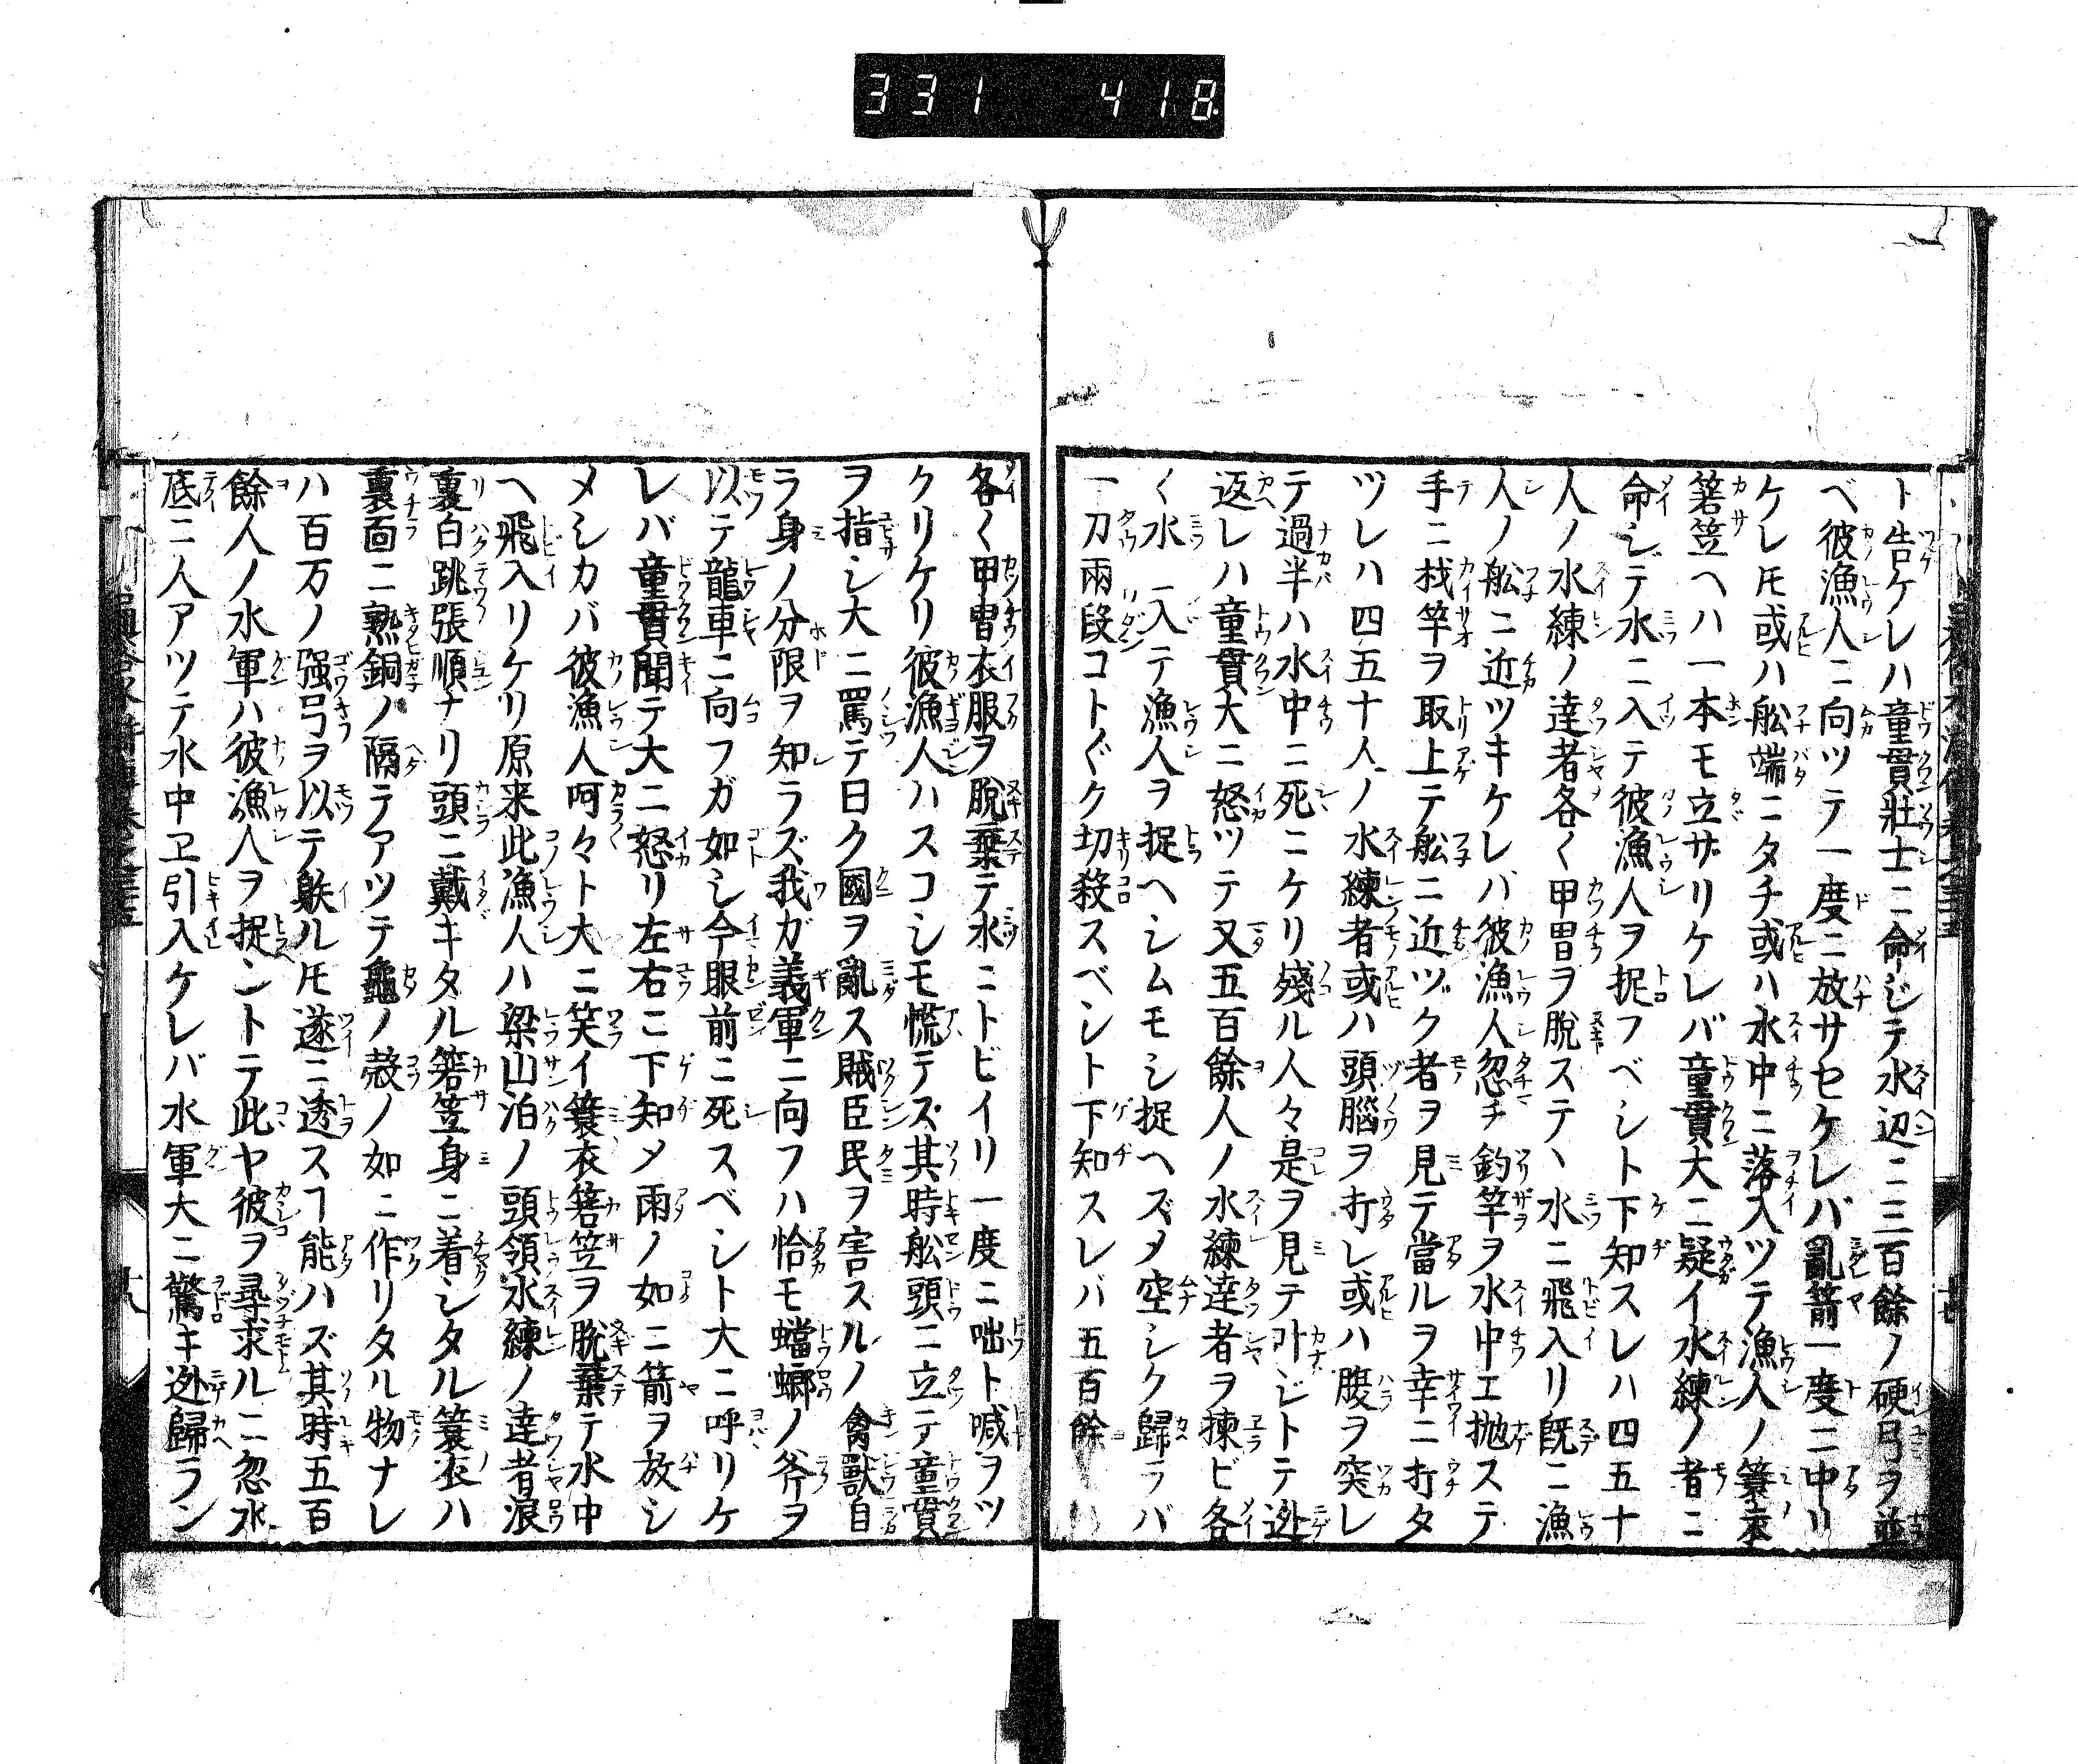 331 418
ト告ケレハ童貫壯士ニ命ジテ水辺ニ三百餘ノ硬弓ヲ並
ベ彼漁人ニ向ツテ一度ニ放サセケレバ亂箭一度ニ中リ
ケレ𪜈或ハ舩端ニタチ或ハ水中ニ落入ツテ漁人ノ簑衣
箬笠ヘハ一本モ立ザリケレバ童貫大ニ疑イ水練ノ者ニ
命ジテ水ニ入テ彼漁人ヲ捉フベシト下知スレハ四五十
人ノ水練ノ達者各〱甲冑ヲ脱ステヽ水ニ飛入リ既ニ漁
人ノ舩ニ近ツキケレバ彼漁人忽チ釣竿ヲ水中エ抛ステ
手ニ栈竿ヲ取上テ舩ニ近ヅク者ヲ見テ當ルヲ幸ニ打タ
ツレハ四五十人ノ水練者或ハ頭腦ヲ打レ或ハ腹ヲ突レ
テ過半ハ水中ニ死ニケリ殘ル人々是ヲ見テ叶ジトテ迯
返レハ童貫大ニ怒ツテ又五百餘人ノ水練達者ヲ揀ビ各
〱水ニ入テ漁人ヲ捉ヘシムモシ捉ヘズメ空シク歸ラバ
一刀兩段コト〲ク切殺スベシト下知スレバ五百餘
各〱甲冑衣服ヲ脱棄テ水ニトビイリ一度ニ咄ト喊ヲツ
クリケリ彼漁人ハスコシモ慌テズ其時舩頭ニ立テ童貫
ヲ指シ大ニ罵テ曰ク國ヲ亂ス賊臣民ヲ害スルノ禽獸自
ラ身ノ分限ヲ知ラズ我ガ義軍ニ向フハ恰モ蟷螂ノ斧ヲ
以テ龍車ニ向フガ如シ今眼前ニ死スベシト大ニ呼リケ
レバ童貫聞テ大ニ怒リ左右ニ下知メ雨ノ如ニ箭ヲ放シ
メシカバ彼漁人呵々ト大ニ笑イ簑衣箬笠ヲ脱棄テ水中
ヘ飛入リケリ原来此漁人ハ梁山泊ノ頭領水練ノ達者浪
裏白跳張順ナリ頭ニ戴キタル箬笠身ニ着シタル簑衣ハ
裏面ニ熟銅ノ隔テアツテ龜ノ殼ノ如ニ作リタル物ナレ
ハ百万ノ强弓ヲ以テ躲ル𪜈遂ニ透スヿ能ハズ其時五百
餘人ノ水軍ハ彼漁人ヲ捉ントテ此ヤ彼ヲ尋求ルニ忽水
底ニ人アツテ水中ヱ引入ケレバ水軍大ニ驚キ迯歸ラン